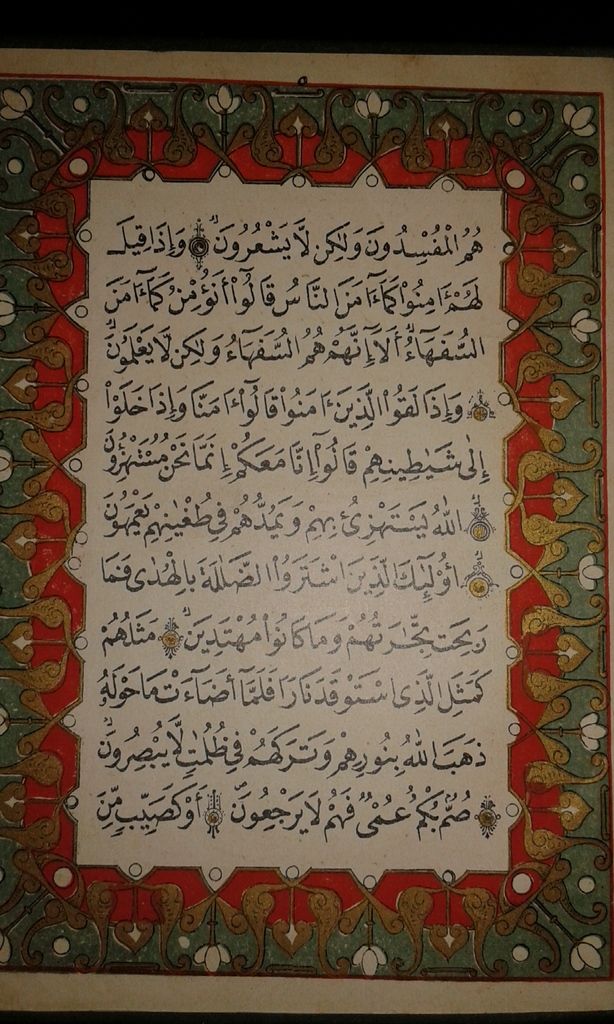 هُمُ الْمُفْسِدُونَ وَلَٰكِن لَّا يَشْعُرُونَ وَإِذَا قِيلَ
لَهُمْ ءَامِنُوا۟ كَمَآ ءَامَنَ النَّاسُ قَالُوٓا۟ أَنُؤْمِنُ كَمَآ ءَامَنَ
السُّفَهَآءُ أَلَآ إِنَّهُمْ هُمُ السُّفَهَآءُ وَلَٰكِن لَّا يَعْلَمُونَ
وَإِذَا لَقُوا۟ الَّذِينَ ءَامَنُوا۟ قَالُوٓا۟ ءَامَنَّا وَإِذَا خَلَوْا۟
إِلَىٰ شَيَٰطِينِهِمْ قَالُوٓا۟ إِنَّا مَعَكُمْ إِنَّمَا نَحْنُ مُسْتَهْزِءُونَ
اللَّهُ يَسْتَهْزِئُ بِهِمْ وَيَمُدُّهُمْ فِى طُغْيَٰنِهِمْ يَعْمَهُونَ
أُو۟لَٰٓئِكَ الَّذِينَ اشْتَرَوُا۟ الضَّلَٰلَةَ بِالْهُدَىٰ فَمَا
رَبِحَت تِّجَٰرَتُهُمْ وَمَا كَانُوا۟ مُهْتَدِينَ مَثَلُهُمْ
كَمَثَلِ الَّذِى اسْتَوْقَدَ نَارًا فَلَمَّآ أَضَآءَتْ مَا حَوْلَهُۥ
ذَهَبَ اللَّهُ بِنُورِهِمْ وَتَرَكَهُمْ فِى ظُلُمَٰتٍ لَّا يُبْصِرُونَ
صُمٌّۢ بُكْمٌ عُمْىٌ فَهُمْ لَا يَرْجِعُونَ أَوْ كَصَيِّبٍ مِّنَ